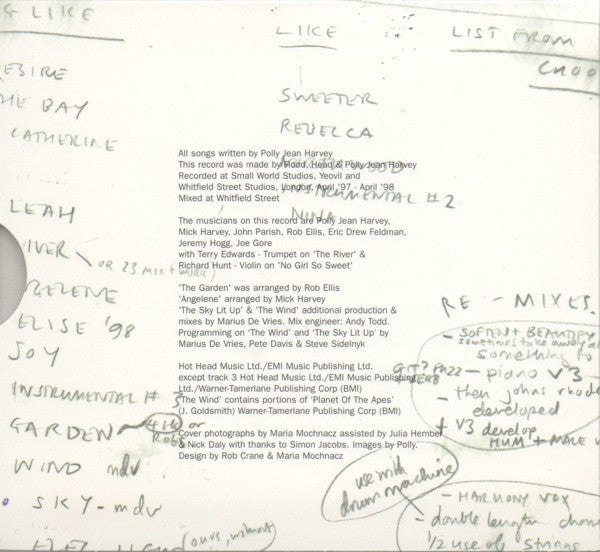 G LIKE
LIKE
LIST FROM
CHOO
ESIRE
HE BAY
CATHERINE
SWEETER
REBECCA
INSTRUMENTAL # 2
NINA
LEAH
IVER - or 23 mix
GELENE
ELISE '98
JOY
INSTRUMENTAL # 3
GARDEN - 4 or
Robs
WIND mdv
SKY - mdv
(ours, without)
All songs written by Polly Jean Harvey
This record was made by Flood, Head & Polly Jean Harvey
Recorded at Small World Studios, Yeovil and
Whitfield Street Studios, London, April '97 - April '98
Mixed at Whitfield Street
The musicians on this record are Polly Jean Harvey,
Mick Harvey, John Parish, Rob Ellis, Eric Drew Feldman,
Jeremy Hogg, Joe Gore
with Terry Edwards - Trumpet on 'The River' &
Richard Hunt - Violin on 'No Girl So Sweet'
'The Garden' was arranged by Rob Ellis
'Angelene' arranged by Mick Harvey
'The Sky Lit Up' & 'The Wind' additional production &
mixes by Marius De Vries. Mix engineer: Andy Todd.
Programming on 'The Wind' and 'The Sky Lit Up' by
Marius De Vries, Pete Davis & Steve Sidelnyk
Hot Head Music Ltd./EMI Music Publishing Ltd.
except track 3 Hot Head Music Ltd./EMI Music Publishing
Ltd./Warner-Tamerlane Publishing Corp (BMI)
'The Wind' contains portions of 'Planet Of The Apes'
(J. Goldsmith) Warner-Tamerlane Publishing Corp (BMI)
Cover photographs by Maria Mochnacz assisted by Julia Hember
& Nick Daly with thanks to Simon Jacobs. Images by Polly.
Design by Rob Crane & Maria Mochnacz
RE - MIXES.
- SOFTEN + BEAUTIFY
sometimes take away or
something to
- piano V3 -
- then johns rhode
developed
+ V3 develop
HUM + MALE
use with
drum machine
- HARMONY VOX
- double length chorus
1/2 use of strings